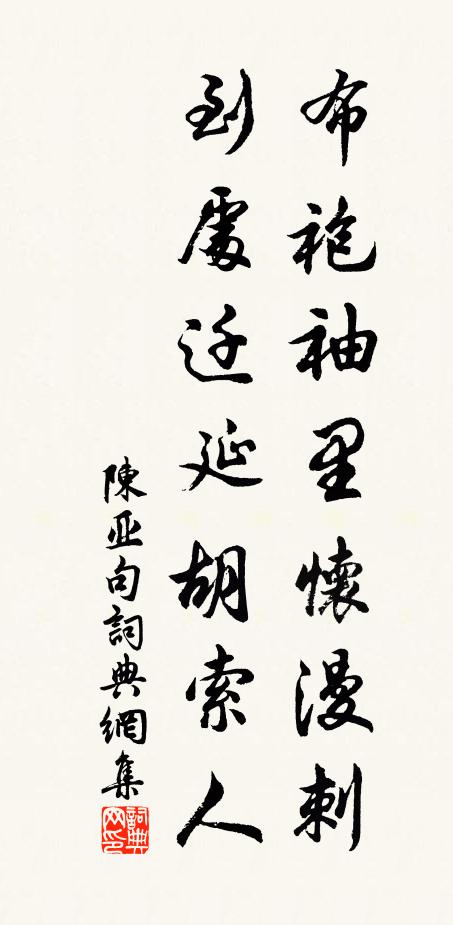 布袍袖里懷漫刺
到處迁延胡索人
陳亚句詞典網集
詞典网印